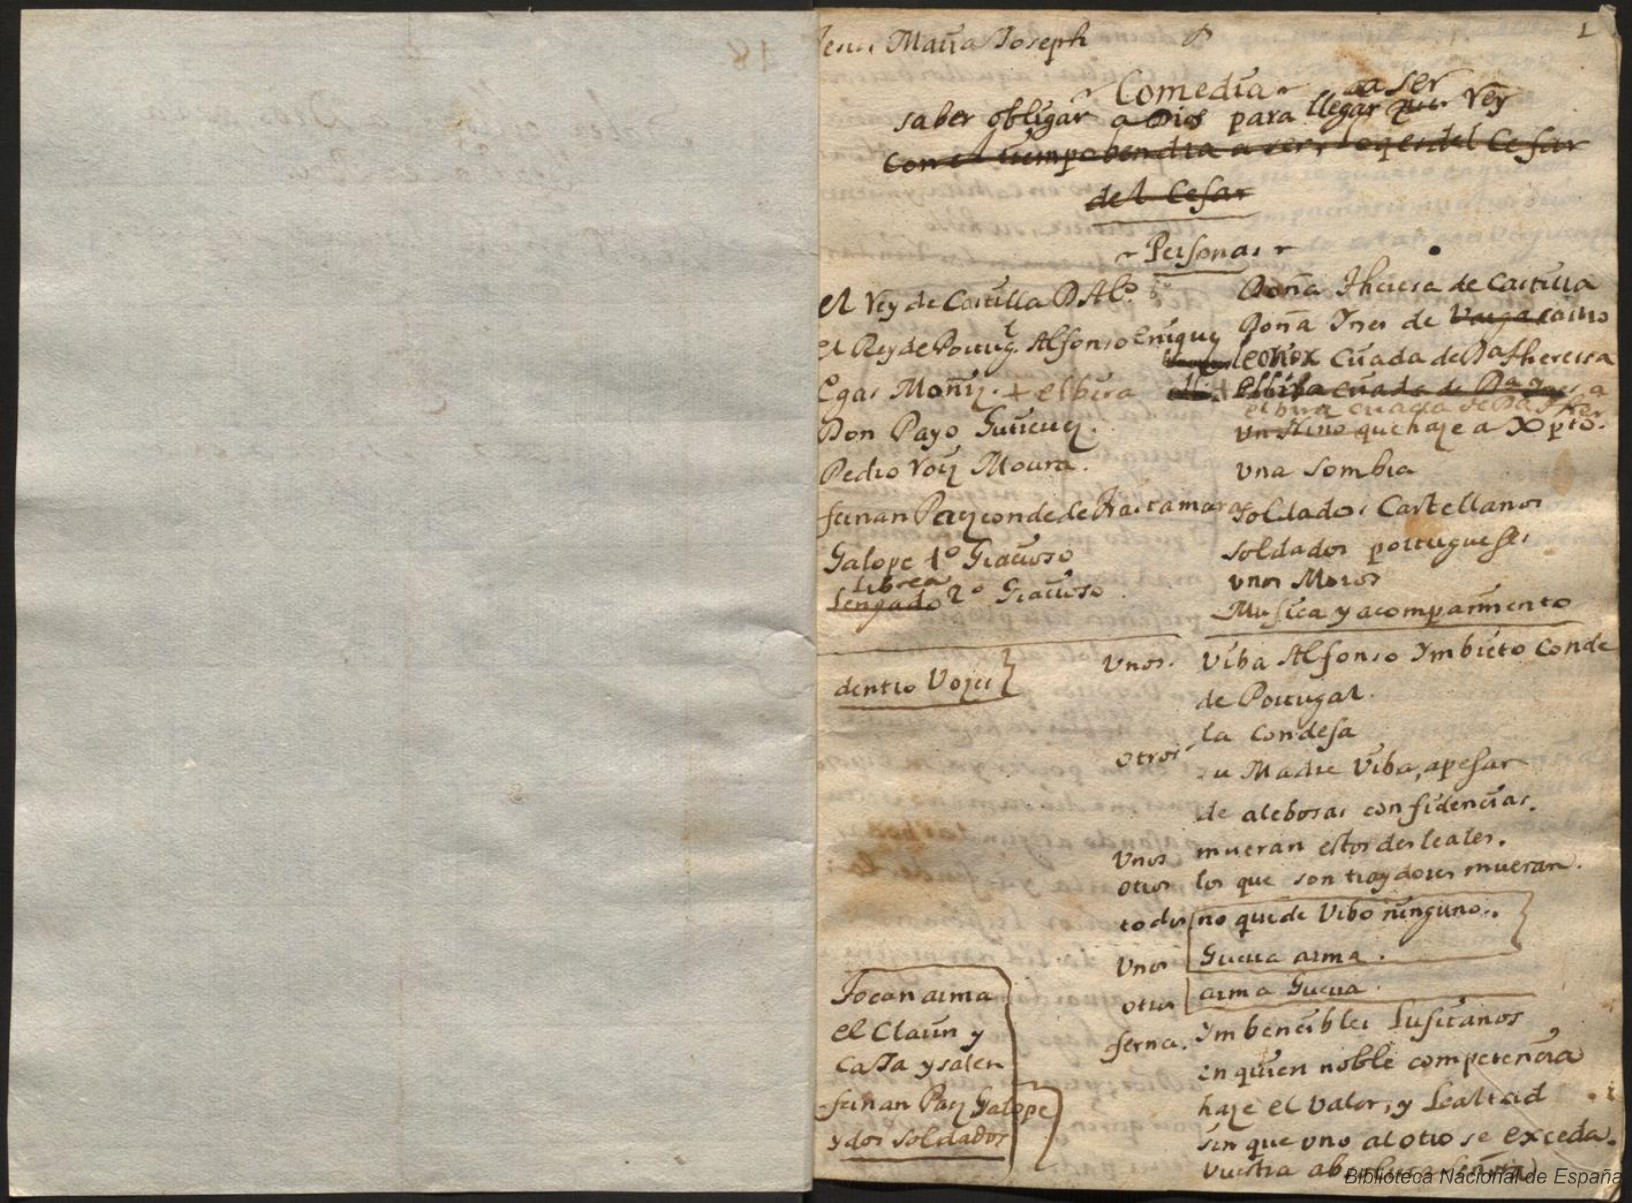 Jesus Maria Joseph
1
Comedia
a ser
saber obligar a Dios para llegar Rey
del Cesar
Personas
el Rey de Castilla D Alo.
el Rey de Portugl. Alfonso Enriquez
Egas Moñiz. + elbira
Don Payo Gutierrez.
Pedro Roiz Moura.
fernan Paez conde de Trastamara
Galope 1º Gracioso
Librea
Lengado 2º Gracioso
Doña Theresa de Castilla
Doña Ynes de castro
leonor criada de Da Theressa
elbira criada de Da Ynes
elbira criada de Da Ynes
un Nino que haze a Xpto.
una sombra
soldados Castellanos
soldados portugueses
unos Moros
Musica y acompañmento
dentro Vozes
Unos. Viba Alfonso Ymbicto Conde
de Portugal.
Otros la Condesa
su Madre Viba, apesar
de alebosas confidencias.
Unos mueran estos desleales.
Otros los que son traydores mueran.
todos no quede Vibo ninguno.
Unos Guerra arma.
Otros arma Guerra.
Tocan arma
el Clarin y
Caxa y salen
fernan Paez Galope
y dos soldados
ferna. Ymbencibles Lusitanos
en quien noble competencia
haze el Valor, y Lealtad
sin que uno al otro se exceda.
Vuestra
Biblioteca Nacional de España